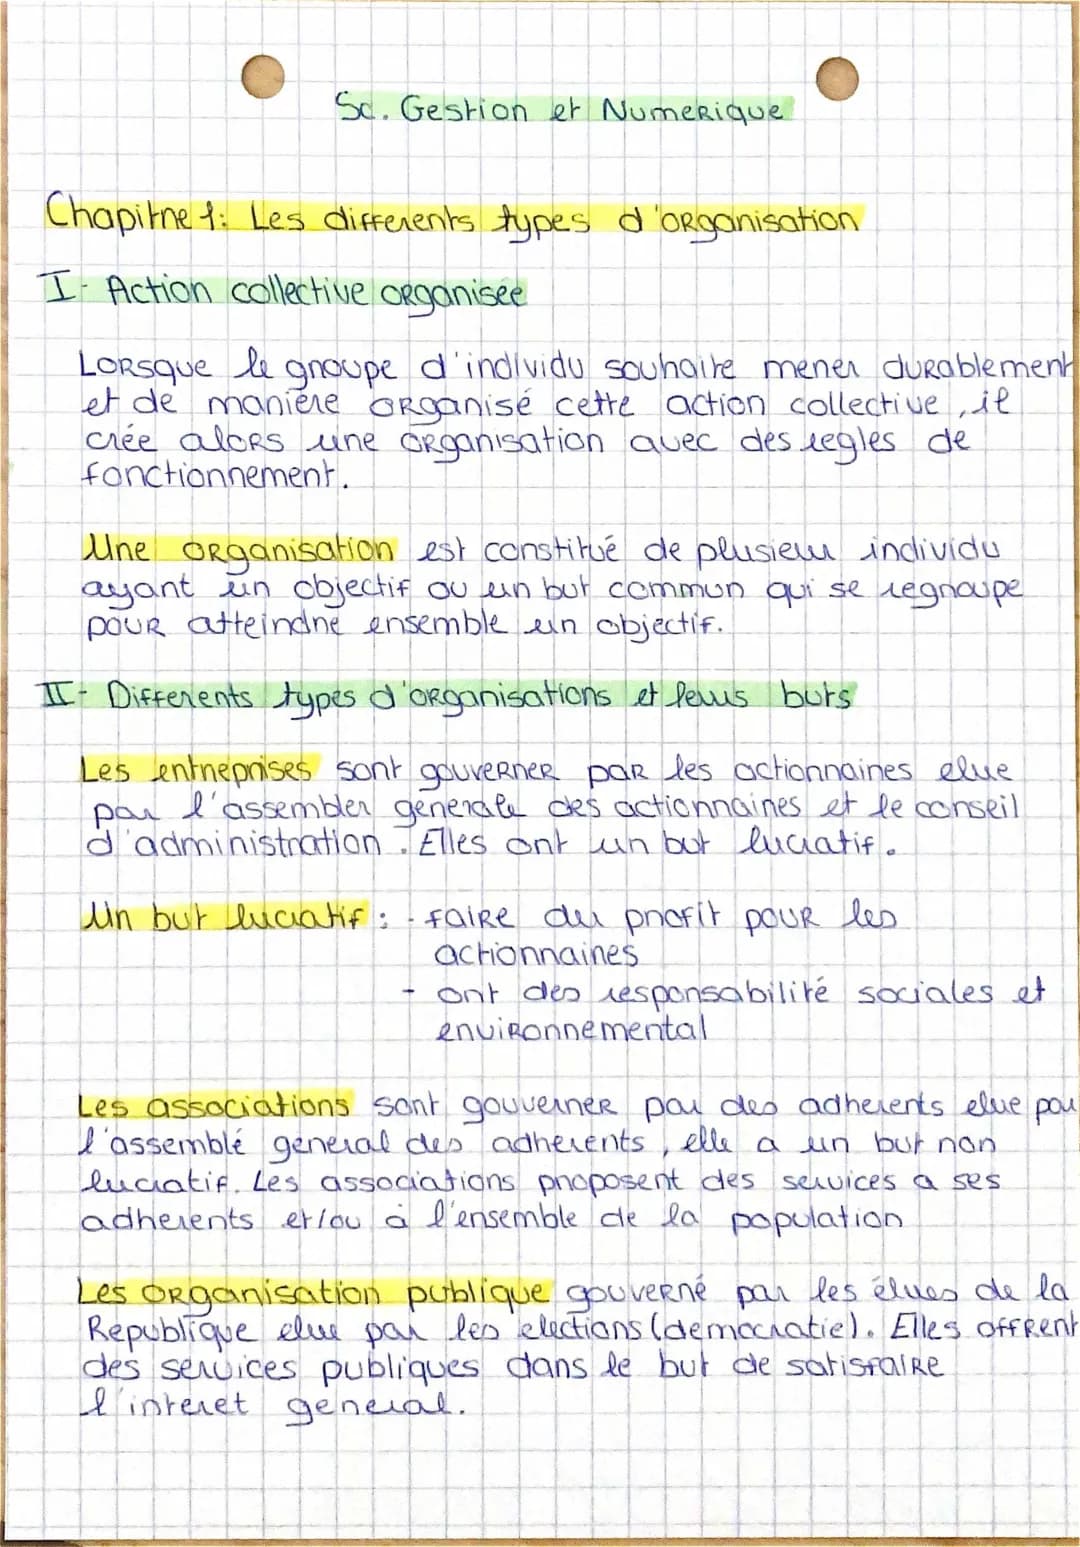 Sc. Gestion et Numerique
Chapitre 1: Les differents types d'organisation
I- Action collective organisée
Lorsque le groupe d'individu souhaite mener durablement
et de manière organisé cette action collective, il
crée alors une organisation avec des regles de
fonctionnement.
Une organisation est constitué de plusieur individu
ayant un objectif ou un but commun qui se regroupe
pour atteindre ensemble un objectif.
II- Differents types d'organisations et leurs buts
Les entreprises sont gouverner par les actionnaires elue
par l'assembler generale des actionnaires et le conseil
d'administration. Elles ont un but lucratif.
Un but lucratif : - faire du profit pour les
actionnaires
- ont des responsabilité sociales et
environnemental
Les associations sont gouverner par des adherents elue par
l'assemblé general des adherents, elle a un but non
lucratif. Les associations proposent des services a ses
adherents et/ou à l'ensemble de la population
Les organisation publique gouverné par les élues de la
Republique elue par les elections (democratie). Elles offrent
des services publiques dans le but de satisfaire
l'interet general.